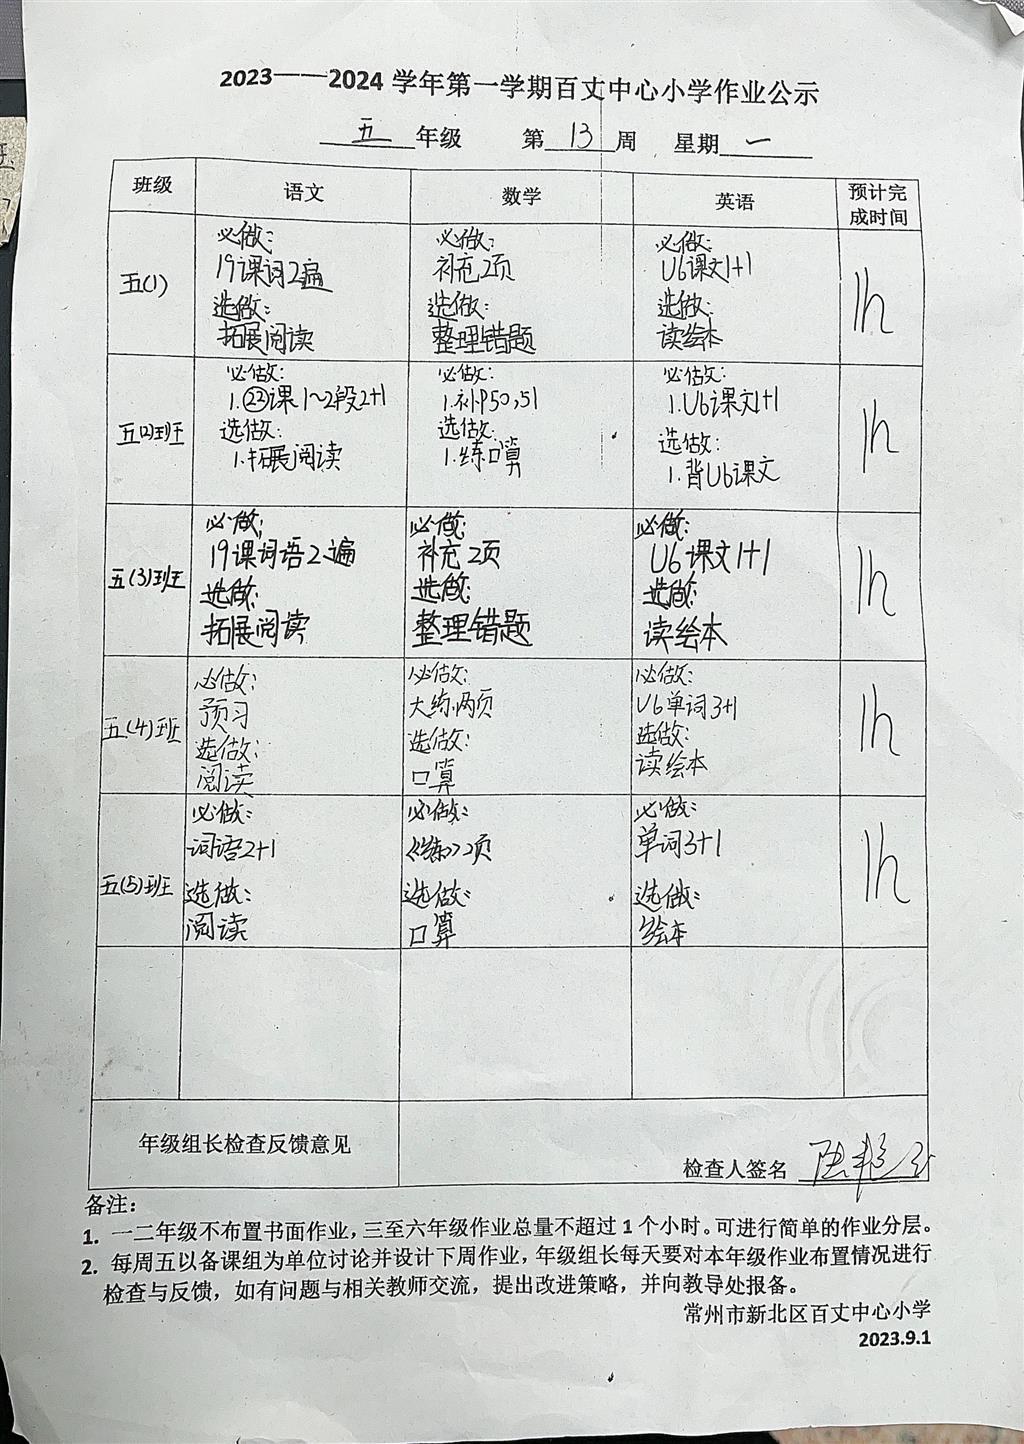 2023——2024 学年第一学期百丈中心小学作业公示
五 年级 第 13 周 星期 一
班级 语文 数学 英语 预计完成时间
五(1)
必做:
19课词2遍
选做:
拓展阅读
必做:
补充2页
选做:
整理错题
必做:
U6课文1+1
选做:
读绘本
1h
五(2)班
必做:
1.㉒课1~2段2+1
选做:
1.拓展阅读
必做:
1.补P50,51
选做:
1.练口算
必做:
1.U6课文1+1
选做:
1.背U6课文
1h
五(3)班
必做:
19课词语2遍
选做:
拓展阅读
必做:
补充2页
选做:
整理错题
必做:
U6课文1+1
选做:
读绘本
1h
五(4)班
必做:
预习
选做:
阅读
必做:
大练两页
选做:
口算
必做:
U6单词3+1
选做:
读绘本
1h
五(5)班
必做:
词语2+1
选做:
阅读
必做:
《练》2页
选做:
口算
必做:
单词3+1
选做:
绘本
1h
年级组长检查反馈意见
检查人签名
备注:
1. 一二年级不布置书面作业，三至六年级作业总量不超过1个小时。可进行简单的作业分层。
2. 每周五以备课组为单位讨论并设计下周作业，年级组长每天要对本年级作业布置情况进行
检查与反馈，如有问题与相关教师交流，提出改进策略，并向教导处报备。
常州市新北区百丈中心小学
2023.9.1